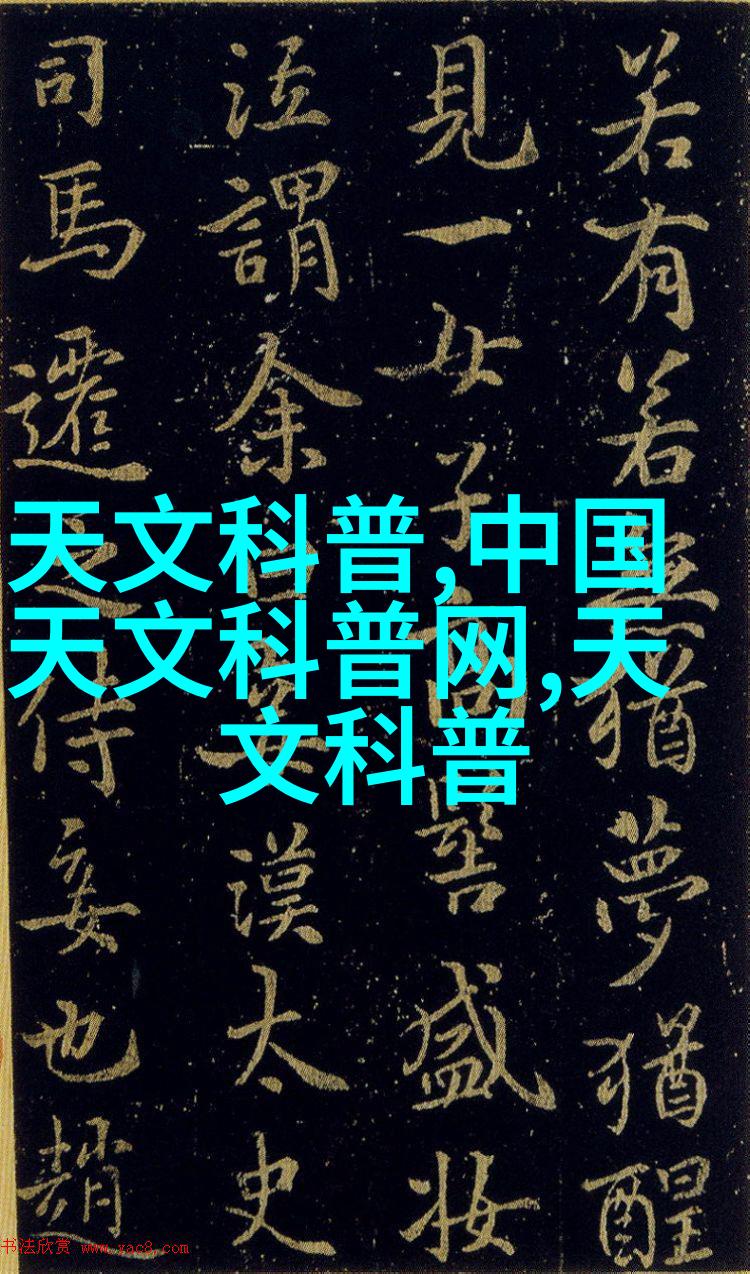 若有若無猶夢猶醒
見一女子高髻盛妝
泣謂余曰妾漢太史
司馬遷之侍妾也趙
天文科普,中国
天文科普网,天
文科普
书法欣赏 www.yac8.com